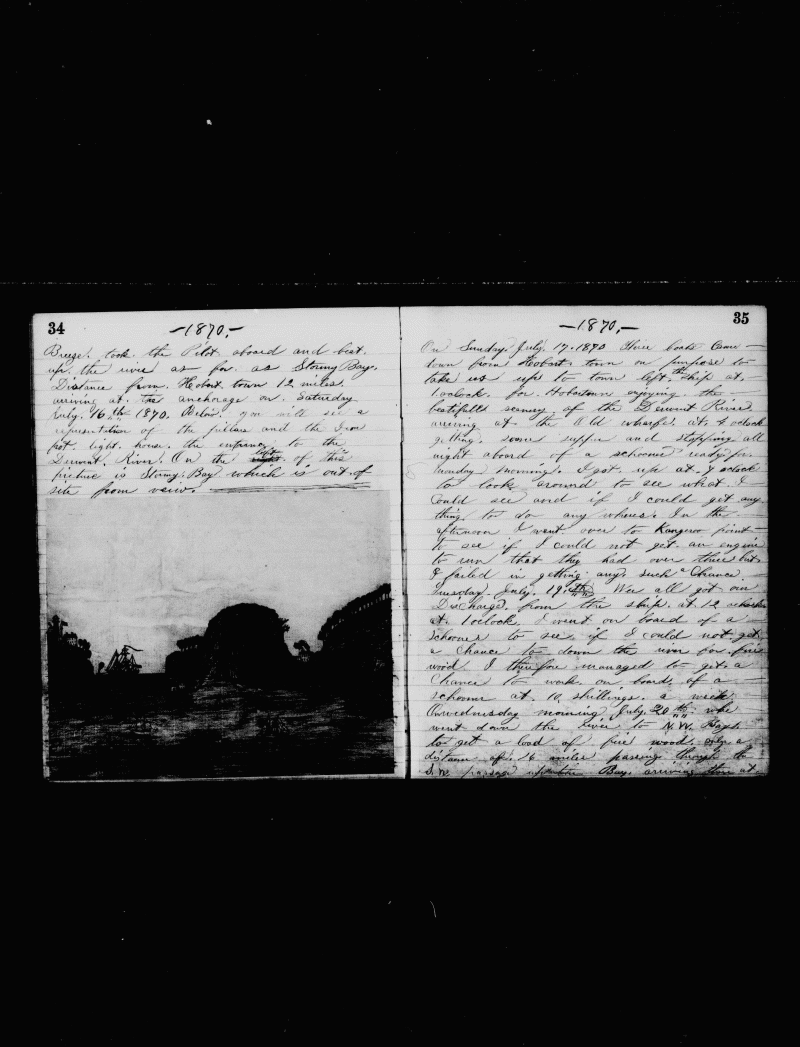 34
-1870,-
Breeze. took the Pilot aboard and beat.
up the river as far as Stormy Bay.
Distance from. Hobart. town 12 miles.
arriving at. the anchorage on. Saturday
July. 16,th 1870. Below. you will see a
representation of the pillars and the Iron
pot. light. house. the entrance to the
Derwent. River. On the left of this
picture is Stormy. Bay which is out of
site from view.
35
-1870,-
On Sunday. July. 17. 1870 three boats Came
town from Hobart. town on purpose to
take us up to town left. the ship at.
1.oclock. for. Hobartown enjoying the
beatifull senery of the Derwent River
at the Old wharfe. at. 4 oclock
getting. some supper and stopping all
night aboard of a schooner ready for.
Monday morning. I got. up at. 7 oclock
to look around to see what I
Could see and if I could get any
thing to do any wheres. In the
afternoon I went over to Kangeroo point
to see if I could not get. an engine
to run that they had over there but
I failed in getting any such a Chance.
Tuesday. July. 19,th Wee all got our
Discharge. from the ship. at 12 oclock
at. 1oclock I went on board of a
schooner to see if I could not get.
a Chance to down the river for fire
wood. I therefore managed to get. a
Chance to work. on board, of a
schooner at. 10, shillings. a week.
Onwednesday morning, July. 20 th. wee
went down the river to N.W. Bay.
to get a load of fire wood only a
distance of. 16 miles passing through the
S.W. passage Bay. arriving thire at